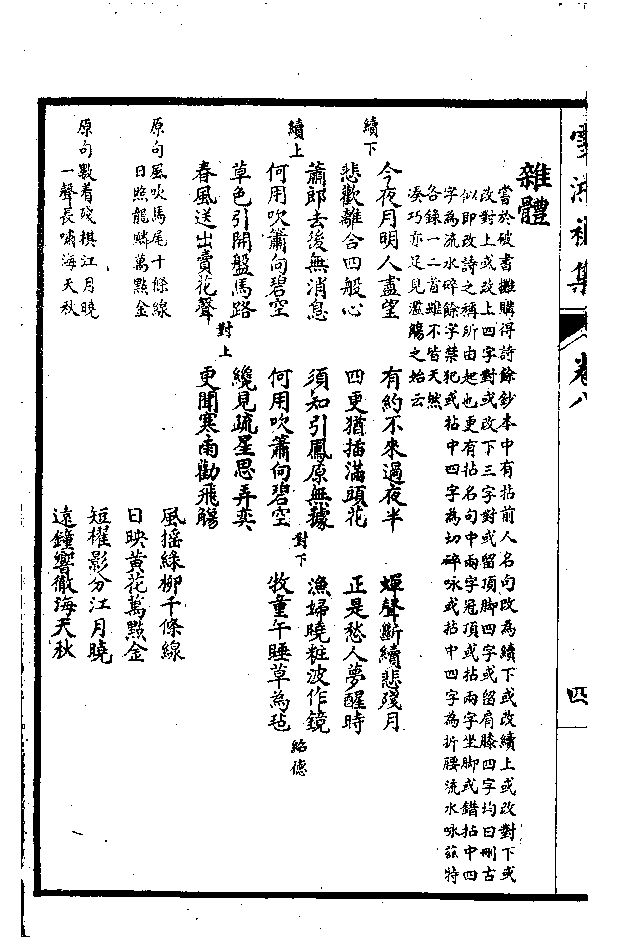 雪鴻初集 卷八 四
雜體
嘗於破書攤購得詩餘鈔本中有拈前人名句改為續下或改續上或改對下或
改對上或改上四字對或改下三字對或留頂脚四字或留肩膝四字均曰刪古
似即改詩之稱所由起也更有拈名句中兩字冠頂或拈兩字坐脚或錯拈中四
字為流水碎餘字禁犯或拈中四字為切碎咏或拈中四字為折腰流水咏茲特
各錄一二首雖不皆天然
湊巧亦足見濫觴之始云
今夜月明人盡望 有約不來過夜半 蟬聲斷續悲殘月
續下
悲歡離合四般心 四更猶插滿頭花 正是愁人夢醒時
蕭郎去後無消息 須知引鳳原無據 漁婦曉粧波作鏡
續上
何用吹簫向碧空 何用吹簫向碧空 對下 牧童午睡草為毡 紹德
草色引開盤馬路 纔見疏星思弄奕
春風送出賣花聲 對上 更聞寒雨勸飛觴
原句風吹馬尾千條線 風搖綠柳千條線
日照龍鱗萬點金 日映黃花萬點金
原句數着殘棋江月曉 短櫂影分江月曉
一聲長嘯海天秋 遠鐘響徹海天秋